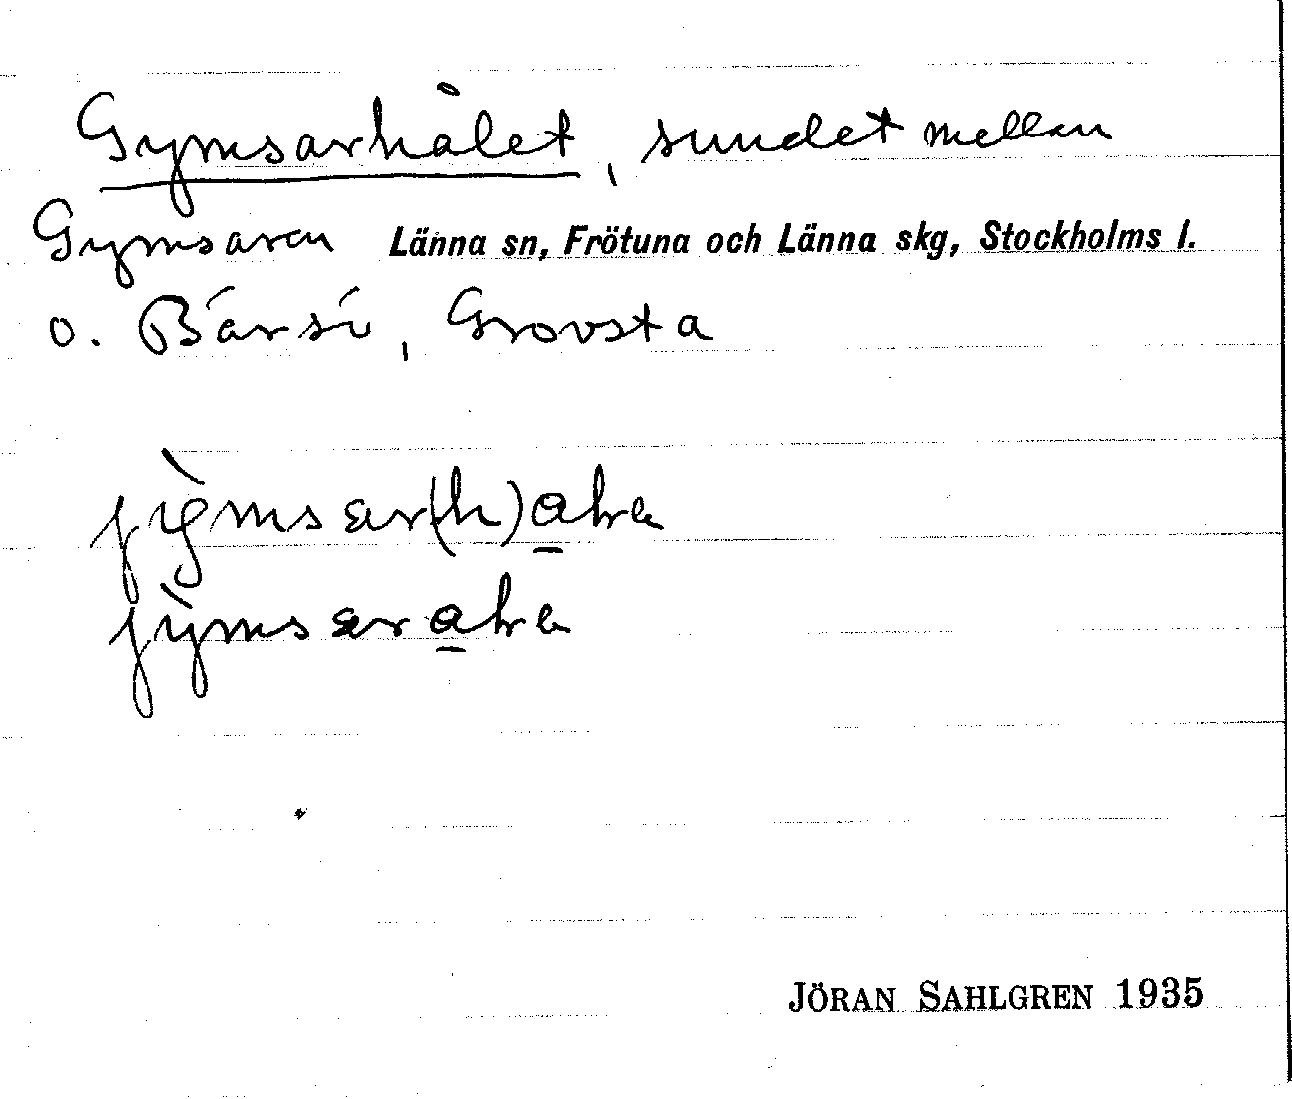 Gymsarhålet, sundet mellan
Gymsaren Länna sn, Frötuna och Länna skg, Stockholms l.
o. Bársí, Grovsta
JÖRAN SAHLGREN 1935